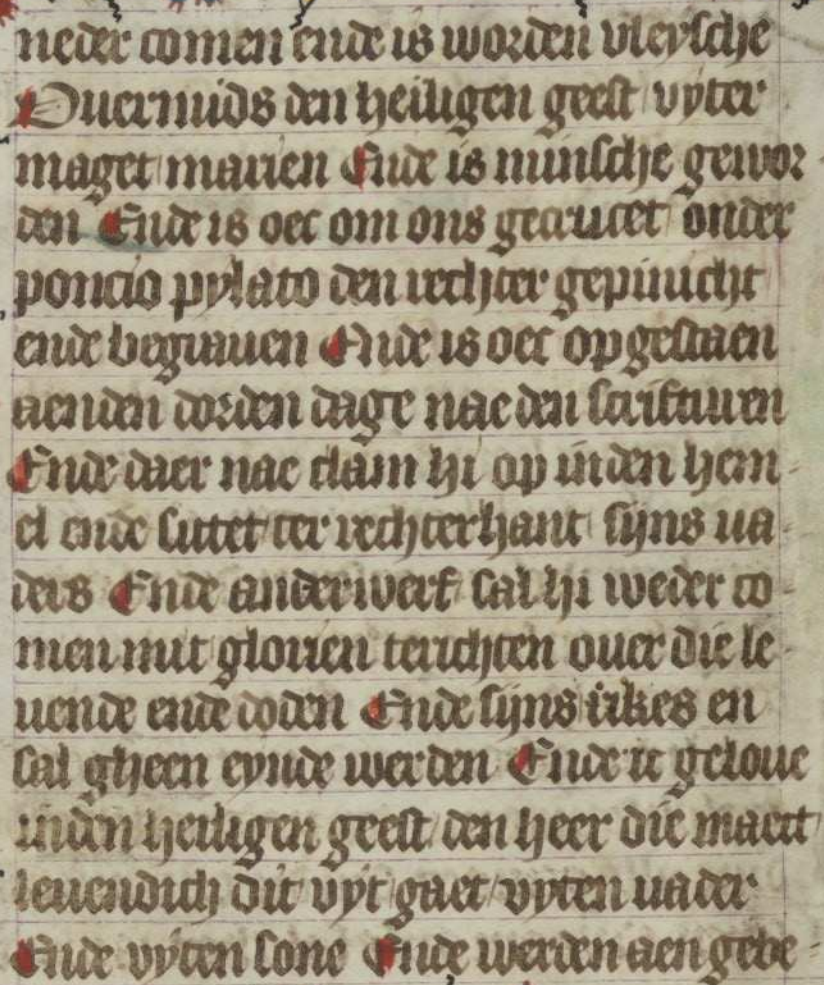 neder comen ende is worden vleysche
Ouermids den heiligen geest vyter
maget marien Ende is minsche gewor
den Ende is oec om ons gecrucet onder
poncio pylato den rechter gepinicht
ende begrauen Ende is oec opgestaen
aenden dorden dage nae den scrifturen
Ende daer nae clam hi op inden hem-
el ende sittet ter rechterhant sijns va-
ders Ende anderwerf sal hi weder co-
men mit glorien te richten ouer die le-
uende ende doden Ende sijns rikes en
sal gheen eynde werden Ende ic geloue
inden heiligen geest den heer die maect
leuendich dit vyt gaet vyten uader
Ende vyten sone Ende werden aen gebe-